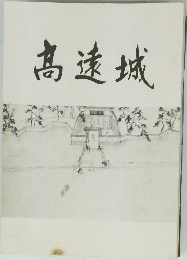 高遠城